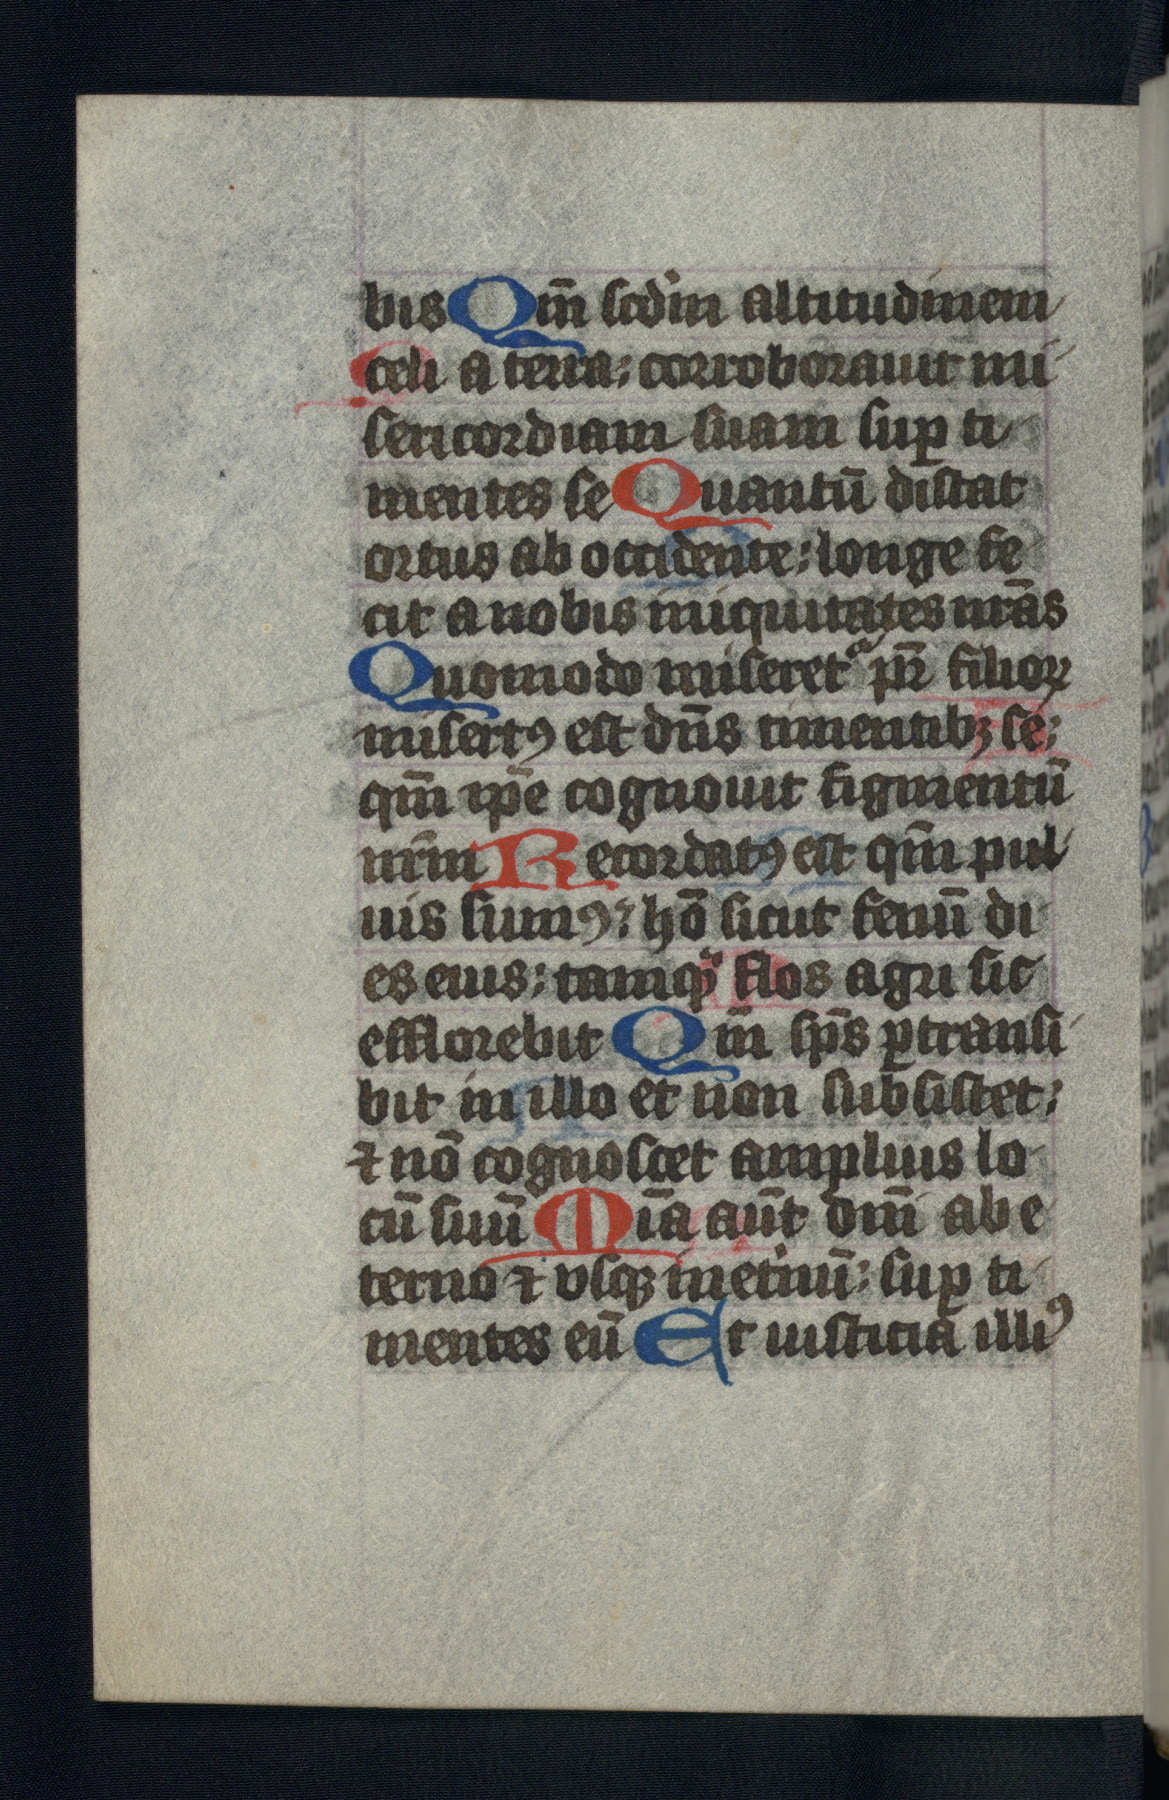 bis Qm̄ scd̾m altitudinem
celi a terra: corroborauit mi
sericordiam suam sup̱ ti
mentes se Quantū distat
ortus ab occidente: longe fe
cit a nobis iniquitates nr̄as
Quomodo miseretᷣ pr̄ filioꝝ
misertꝰ est dn̄s timentibꝫ se:
qm̄ ip̄e cognouit figmentū
nr̄m Recordatꝰ est qm̄ pul
uis sumꝰ: hō sicut fenū di
es eius: tamqͣ flos agri sic
efflorebit Qm̄ sp̄s ꝑtransi
bit in illo et non subsistet:
⁊ nō cognoscet amplius lo
cū suū Mīa aūt dn̄i ab e
terno ⁊ vsqꝫ in et̾nū: suꝑ ti
mentes eū Et iusticia illiꝰ